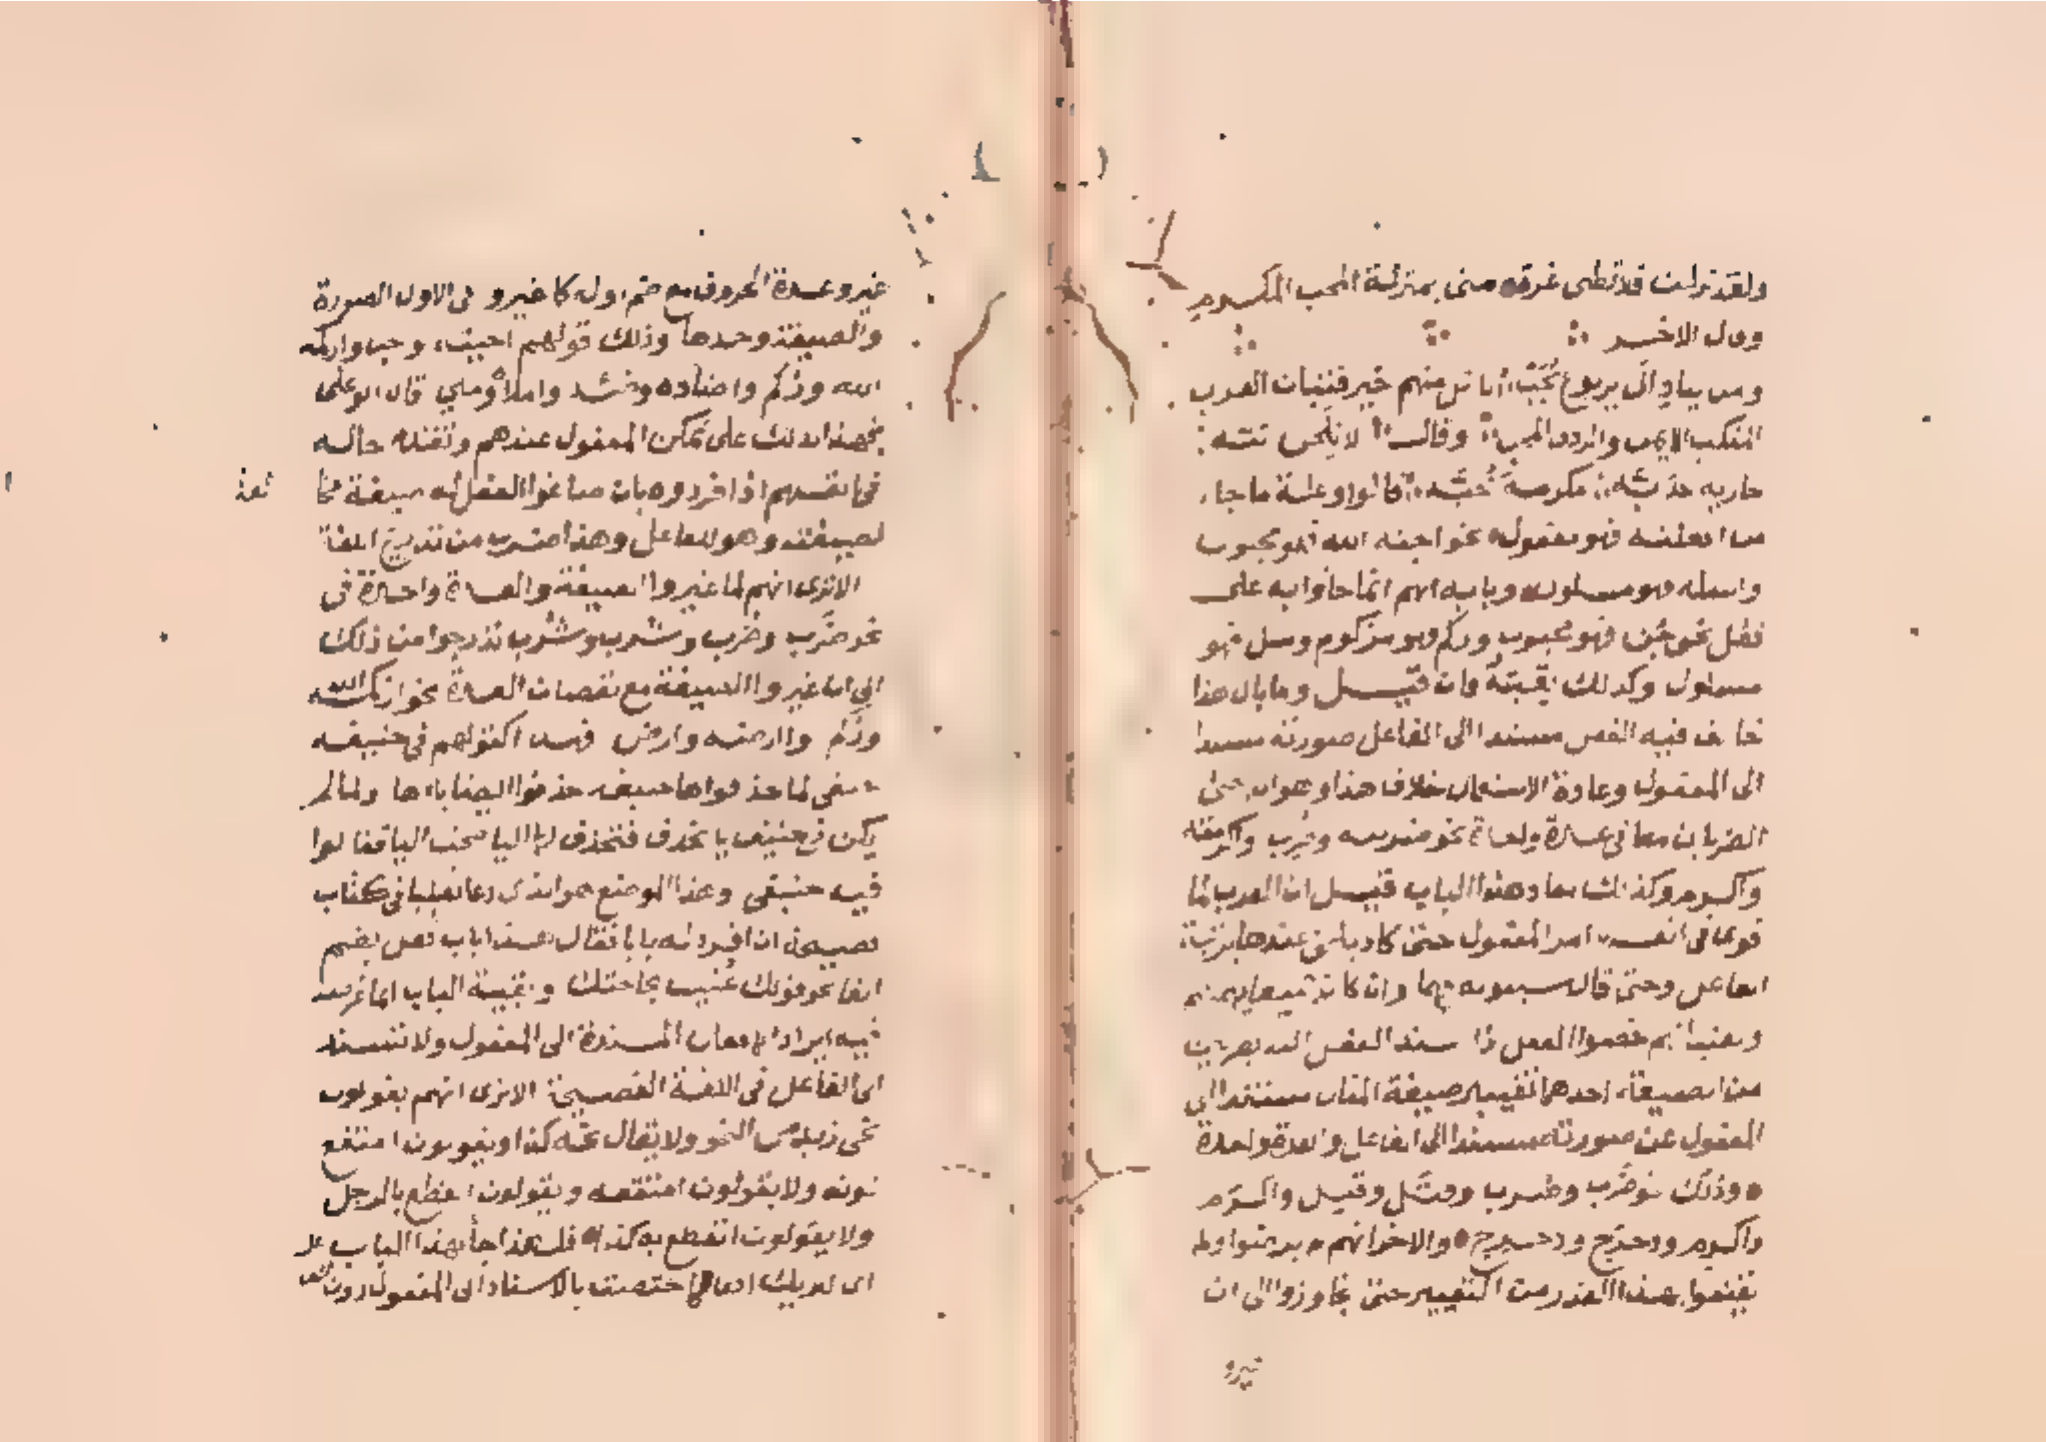 ولقد نزلت فلا تظنى غيره منى بمنزلة المحب المكرم
وقال الاخر
ومن يناد ال يربوع يجب يأتك منهم خير فتيان العرب
المنكب الايمن والردف المحب وقالت لانكحن ببه
جاريه خدبه مكرمة محبه قالوا وعلة ما جاء
من افعلته فهو مفعول نحو اجنه الله فهو مجنون
واسله فهو مسلول وبابه انهم انما جاؤا به على
فعل نحو جن فهو مجنون وزكم فهو مزكوم وسل فهو
مسلول وكذلك بقيته فان قيل وما بال هذا
خالف فيه الفعل مسندا الى الفاعل صورته مسندا
الى المفعول وعادة الاستعمال خلاف هذا وهو ان يجئ
الضربان معا فى عدة واحدة نحو ضربته وضرب واكرمته
واكرم وكذلك مقاد هذا الباب قيل ان العرب لما
قوى فى انفسها امر المفعول حتى كاد يلحق عندها برتبة
الفاعل وحتى قال سيبويه فيهما وان كانا جميعا يهمانهم
ويعنيانهم خصوا الفعل اذا اسند الفعل اليه بضربين
من الصيغة احدهما تغيير صيغة المثال مسندا الى
المفعول عن صورته مسندا الى الفاعل والعدة واحدة
وذلك نحو ضرب وضرب وقتل وقتل واكرم
واكرم ودحرج ودحرج والاخر انهم لم يرضوا ولم
يقنعوا بهذا القدر من التغيير حتى تجاوزوا الى ان
غيروا
غيروا عدة الحروف مع ضم اوله كما غيروا فى الاول الصورة
والصيغة وحدها وذلك قولهم احببته وحب وازكمه
الله وزكم واضأده وضئد واملأه وملئ قال ابو على
فهذا يدلك على تمكن المفعول عندهم وتقدم حاله
فى انفسهم اذ افردوه بان صاغوا الفعل له صيغة مخا
لصيغته وهو للفاعل وهذا ضرب من تدريج اللغة
الا ترى انهم لما غيروا الصيغة والعدة واحدة فى
نحو ضرب وضرب وشرب وشرب تدرجوا من ذلك
الى ان غيروا الصيغة مع نقصان العدة نحو ازكمه الله
وزكم وآرضه وارض فهذا كقولهم فى حنيفة
حنفى لما حذفوا هاء حنيفة حذفوا ايضا ياءها ولما لم
يكن فى حنيف ياء تحذف فتحذف لها الياء صحت الياء فقالوا
فيه حنيفى وهذا الموضع هو الذى دعا ثعلبا فى كتاب
فصيحه ان افرد له بابا فقال هذا باب فعل بضم
الفاء نحو قولك عنيت بحاجتك وبقية الباب انما غرضه
فيه ايراد الافعال المسندة الى المفعول ولا تسند
الى الفاعل فى اللغة الفصيحة الا ترى انهم يقولون
نخى زيد من النخو ولا يقال نخاه كذا ويقولون امتقع
لونه ولا يقولون امتقعه ويقولون انقطع بالرجل
ولا يقولون انقطع به كذا فلهذا جاء بهذا الباب
اى ليريك افعالا اختصت بالاسناد الى المفعول دون